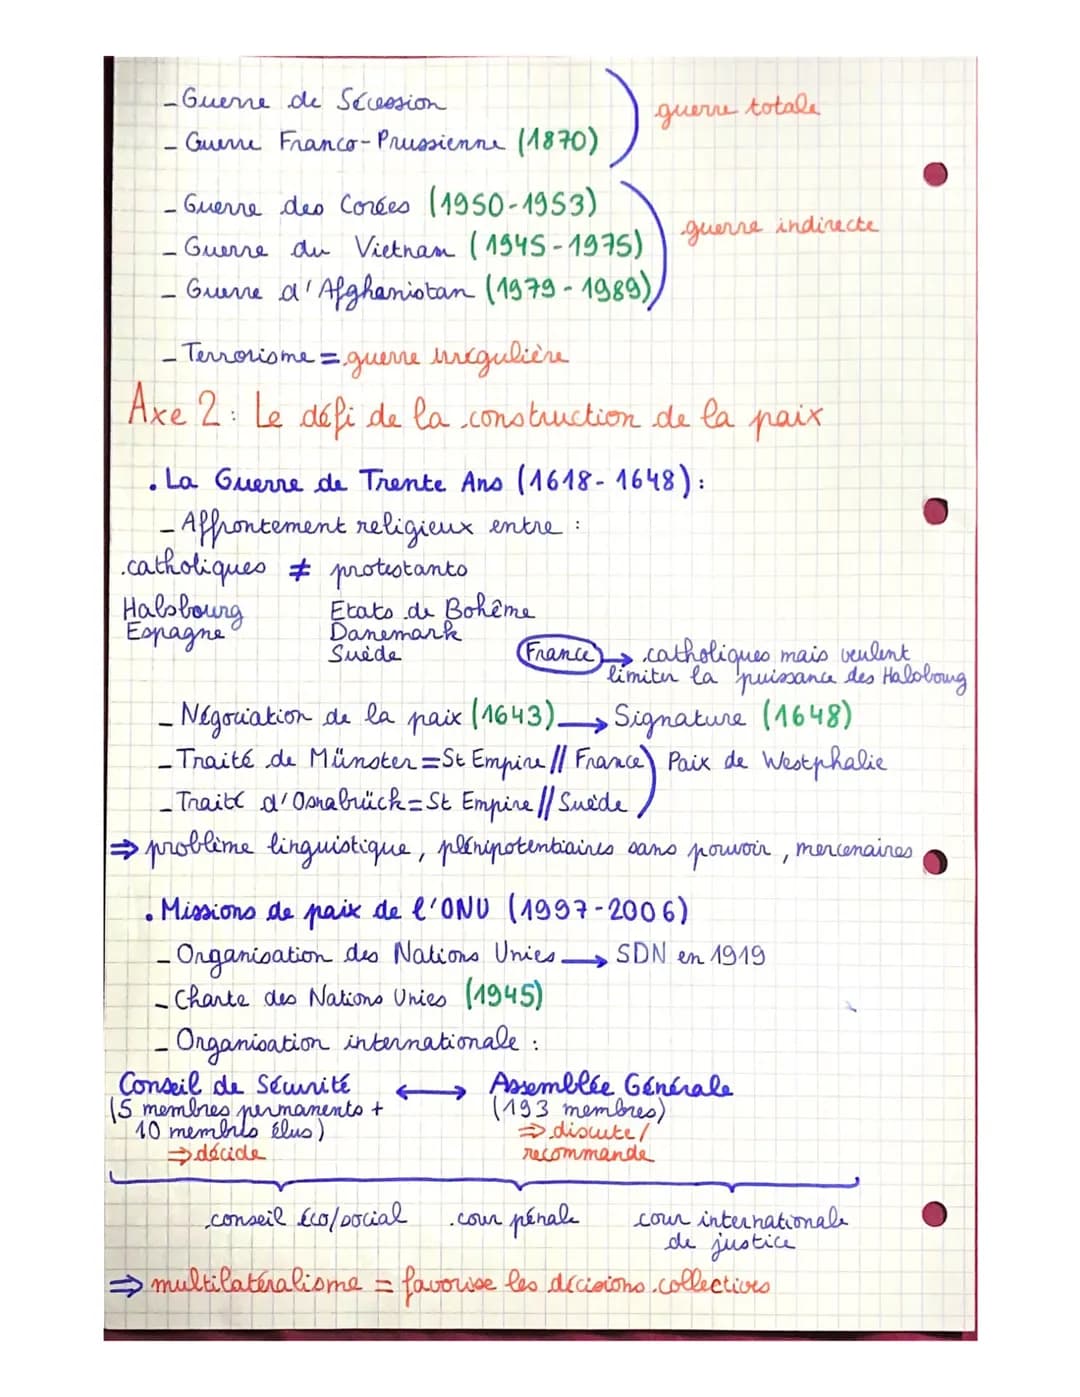 - Guerre de Sécession
guerre totale
- Guerre Franco-Prussienne (1870)
- Guerre des Corées (1950-1953)
guerre indirecte
- Guerre du Vietnam (1945-1975)
- Guerre d'Afghanistan (1979-1989)
- Terrorisme = guerre irrégulière
Axe 2 : Le défi de la construction de la paix
. La Guerre de Trente Ans (1618-1648) :
- Affrontement religieux entre :
. catholiques ≠ protestants
Habsbourg Etats de Bohême
Espagne Danemark
Suède
France → catholiques mais veulent
limiter la puissance des Habsbourg
- Négociation de la paix (1643) → Signature (1648)
- Traité de Münster = St Empire // France Paix de Westphalie
- Traité d'Osnabrück = St Empire // Suède
⇒ problème linguistique, plénipotentiaires sans pouvoir, mercenaires
. Missions de paix de l'ONU (1997-2006)
- Organisation des Nations Unies → SDN en 1919
- Charte des Nations Unies (1945)
- Organisation internationale :
Conseil de Sécurité ↔ Assemblée Générale
(5 membres permanents + (193 membres)
10 membres élus) ⇒ discute/
⇒ décide recommande
. conseil éco/social . cour pénale cour internationale
de justice
⇒ multilatéralisme = favorise les décisions collectives